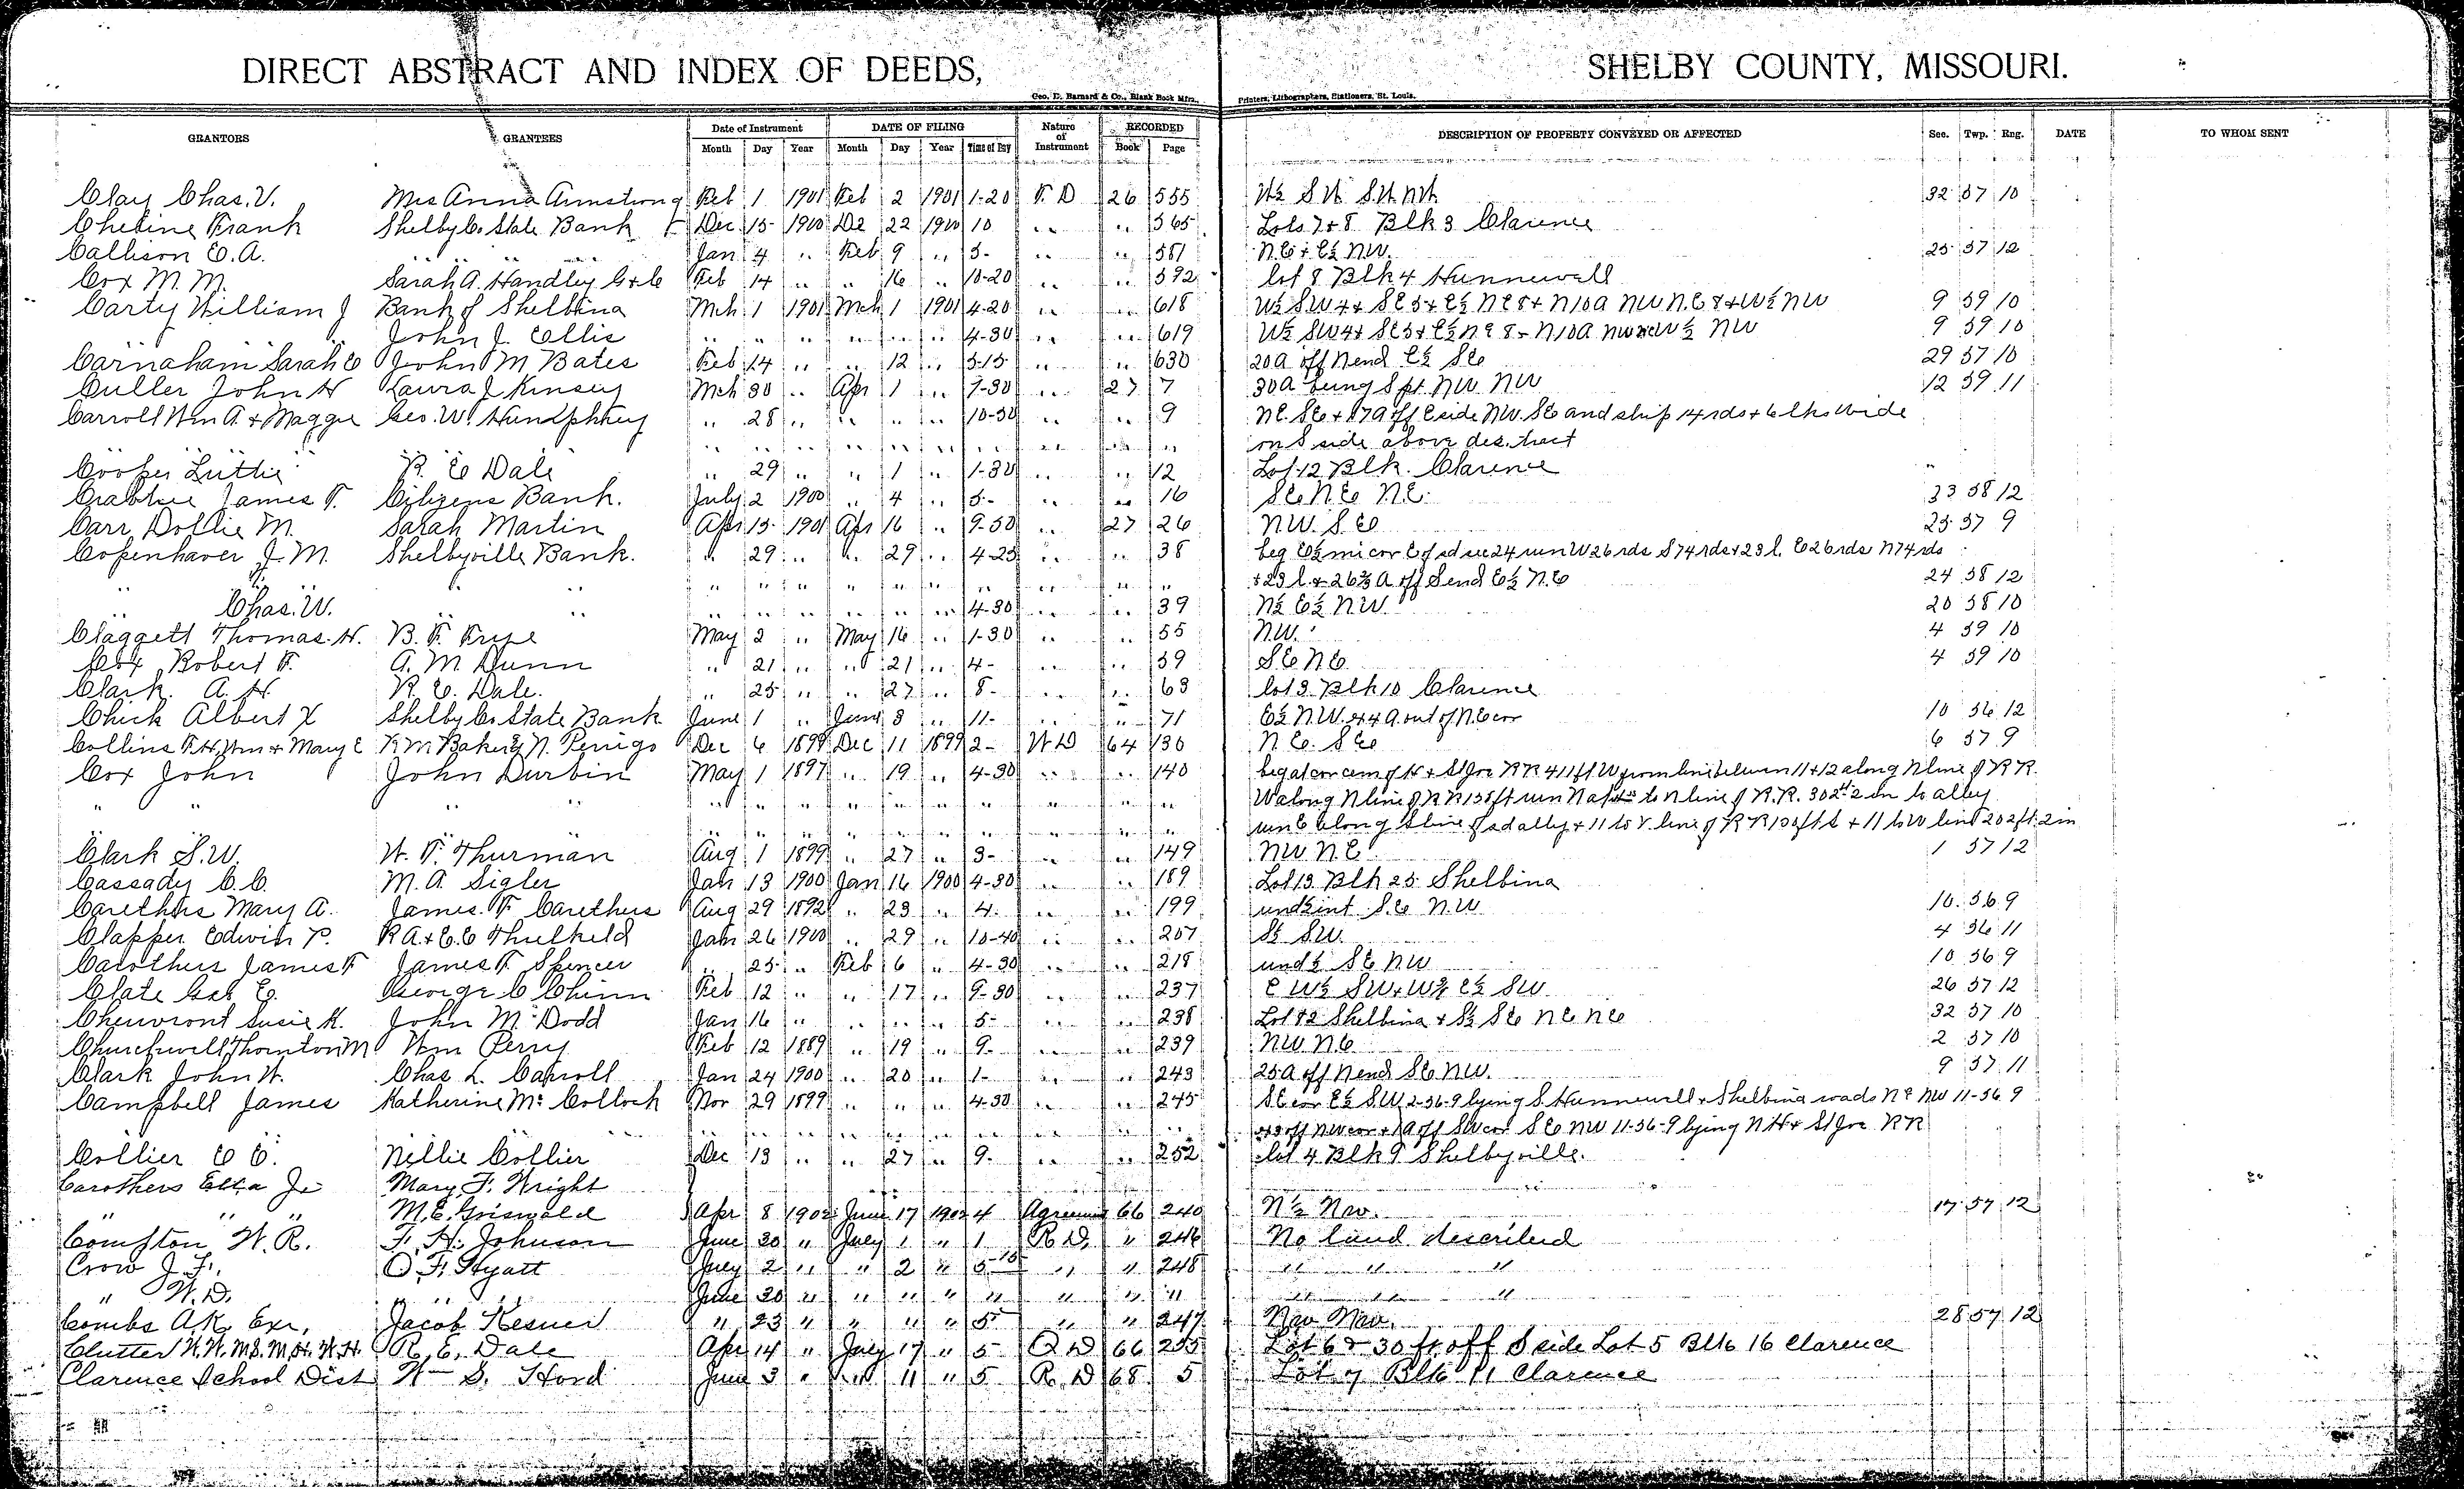 DIRECT ABSTRACT AND INDEX OF DEEDS, SHELBY COUNTY, MISSOURI.
Geo. D. Barnard & Co., Blank Book Mfrs., Printers, Lithographers, Stationers, St. Louis.
GRANTORS GRANTEES Date of Instrument DATE OF FILING Nature of Instrument RECORDED DESCRIPTION OF PROPERTY CONVEYED OR AFFECTED Sec. Twp. Rng. DATE TO WHOM SENT
Month Day Year Month Day Year Time of Day Book Page
Clay Chas. V. Mrs Anna Armstrong Feb 1 1901 Feb 2 1901 1-20 T. D 26 555 32 57 10
Frank Shelby Co. State Bank Dec 15 1900 De 22 1900 10 " " 565 Lots 7+8 Blk 3 Clarence
Callison E. A. " " " Jan 4 " Feb 9 " 3- " " 581 N.E + E½ NW. 25 57 12
Cox M. M. Sarah A. Handley Feb 14 " " 16 " 10-20 " " 592 lot 8 Blk 4 Hunnewell
Carty William J Bank of Shelbina Mch 1 1901 Mch 1 1901 4-20 " " 618 W½ SW 4+ SE 5+ E½ NE 8+ N10A NW N.E 8+W½ NW 9 59 10
John J. Ellis " " " " " " 4-30 " " 619 W½ SW 4+ SE 5+ E½ NE 8- N10A NW NE W½ NW 9 59 10
Carnaham Sarah E John M Bates Feb 14 " " 12 " 3-15 " " 630 20A off N end E½ SE 29 57 10
Culler John H Laura J Kinsey Mch 30 " Apr 1 " 7-30 " 27 7 30A being S pt. NW NW 12 59 11
Carroll Wm A. + Maggie Geo. W. Humphrey " 28 " " " " 10-30 " " 9 NE. SE + 17A off E side NW. SE and strip 14 rds + 6 lks wide
" " " " " " " " " " on S side above des. tract
Cooper Luttie R. E Dale " 29 " " 1 " 1-30 " " 12 Lot 12 Blk. Clarence
Crabtree James T. Citizens Bank. July 2 1900 " 4 " 5- " " 16 SE NE N.E. 33 58 12
Carr Dollie M. Sarah Martin Apr 15 1901 Apr 16 " 9-50 " 27 26 NW. S.E 25 57 9
Copenhaver J. M. Shelbyville Bank. " 29 " " 29 " 4-25 " " 38 beg E½ mi cor E of sd sec 24 run W 26 rds S 74 rds + 23 l. E 26 rds N 74 rds
" " " " " " " " " " " " +23 l. + 26⅔ A off S end E½ N.E 24 58 12
" Chas. W. " " " " " " " " 4-30 " " 39 N½ E½ N.W. 20 58 10
Claggett Thomas. H. B. F. Frye May 2 " May 16 " 1-30 " " 55 N.W. 4 59 10
Cox Robert F. A. M Dunn " 21 " " 21 " 4- " " 59 S.E N.E. 4 59 10
Clark. A. H. R. E. Dale. " 25 " " 27 " 8- " " 63 lot 3 Blk 10 Clarence
Chick Albert X Shelby Co. State Bank June 1 " June 8 " 11- " " 71 E½ N.W. + 4 A. out of N.E cor 10 56 12
Collins F. H, Wm + Mary E Dec 6 1899 Dec 11 1899 2- W D 64 130 N.E. SE 6 57 9
Cox John John Durbin May 1 1897 " 19 " 4-30 " " 140 beg at cor cem of H + St Joe RR 411 ft W from line between 11+12 along N line of RR.
" " " " " " " " " " " " " W along N line of RR 135 ft run N to N line of R.R. 302 ft 2 in to alley
" " " " " " " " " " " run E along S line of sd alley
Clark S. W. W. F. Thurman Aug 1 1899 " 27 " 3- " " 149 NW N.E 1 57 12
Cassady C. C. M. A. Sigler Jan 13 1900 Jan 16 1900 4-30 " " 189 Lot 13 Blk 25 Shelbina
Carethers Mary A. James. F Carethers Aug 29 1892 " 23 " 4- " " 199 und½ int S.E N.W 10 56 9
Clapper Edwin P. R A. + E. E Thielkeld Jan 26 1900 " 29 " 10-40 " " 207 S½ SW. 4 56 11
Carothers James F James F. Spencer " 25 " Feb 6 " 4-30 " " 218 und½ SE NW 10 56 9
George C Chinn Feb 12 " " 17 " 9-30 " " 237 E W½ SW + W½ E½ SW 26 57 12
Cheuvront Susie K. John Mc Dodd Jan 16 " " " " 5- " " 238 Lot 82 Shelbina + S½ SE NE NE 32 57 10
Churchwell Thornton M Wm Perry Feb 12 1889 " 19 " 9- " " 239 NW. N.E. 2 57 10
Clark John W. Chas. L. Carroll Jan 24 1900 " 20 " 1- " " 243 25 A off N end SE NW. 9 57 11
Campbell James Katherine Mc Collock Nor 29 1899 " " " 4-30 " " 245 SE cor E½ S.W 2-56-9 lying S Hunnewell + Shelbina roads NE NW 11-56 9
" " " " " " " " off NW cor + 1A off SW cor S E NW 11-56-9 lying N H + St Joe RR
Collier E E. Nellie Collier Dec 13 " " 27 " 9- " " 252 lot 4 Blk 9 Shelbyville.
Carothers Etta Je Mary F. Wright
" " " M. E. Griswold Apr 8 1902 June 17 1902 4 Agreement 66 240 N½ NW. 17 57 12
Compton W. R. F. H. Johnson June 30 " July 1 " 1 R D. " 246 No land described
Crow J. F. O. F. Hyatt July 2 " " 2 " 5-15 " " 248 " " "
" W. D. " " June 30 " " " " " " " " " " "
Combs A.K. Exr, Jacob Kesner " 23 " " " " 5 " " 247 NW NW. 28 57 12
Clutter W. W. M.S. M.H. W.H. R. E. Dale Apr 14 " July 17 " 5- Q D 66 255 Lot 6 & 30 ft off S side Lot 5 Blk 16 Clarence
Clarence School Dist Wm S. Hord June 3 " " 11 " 5 R. D 68 5 Lot 7 Blk 11 Clarence